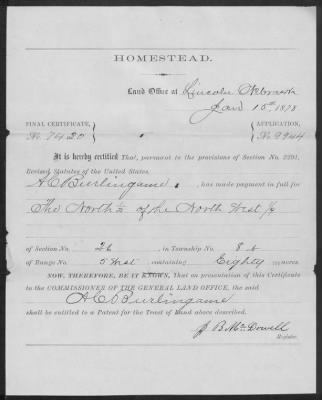 HOMESTEAD.
Land Office at Lincoln Nebraska
Jan'y 15th 1878
FINAL CERTIFICATE, APPLICATION,
No. 7420 No. 9944
It is hereby certified That, pursuant to the provisions of Section No. 2291,
Revised Statutes of the United States,
A C Burlingame, has made payment in full for
The North ½ of the North West ¼
of Section No. 26, in Township No. 8 N
of Range No. 5 West containing Eighty acres.
NOW, THEREFORE, BE IT KNOWN, That on presentation of this Certificate
to the COMMISSIONER OF THE GENERAL LAND OFFICE, the said
A C Burlingame
shall be entitled to a Patent for the Tract of Land above described.
J B McDowell
Register.